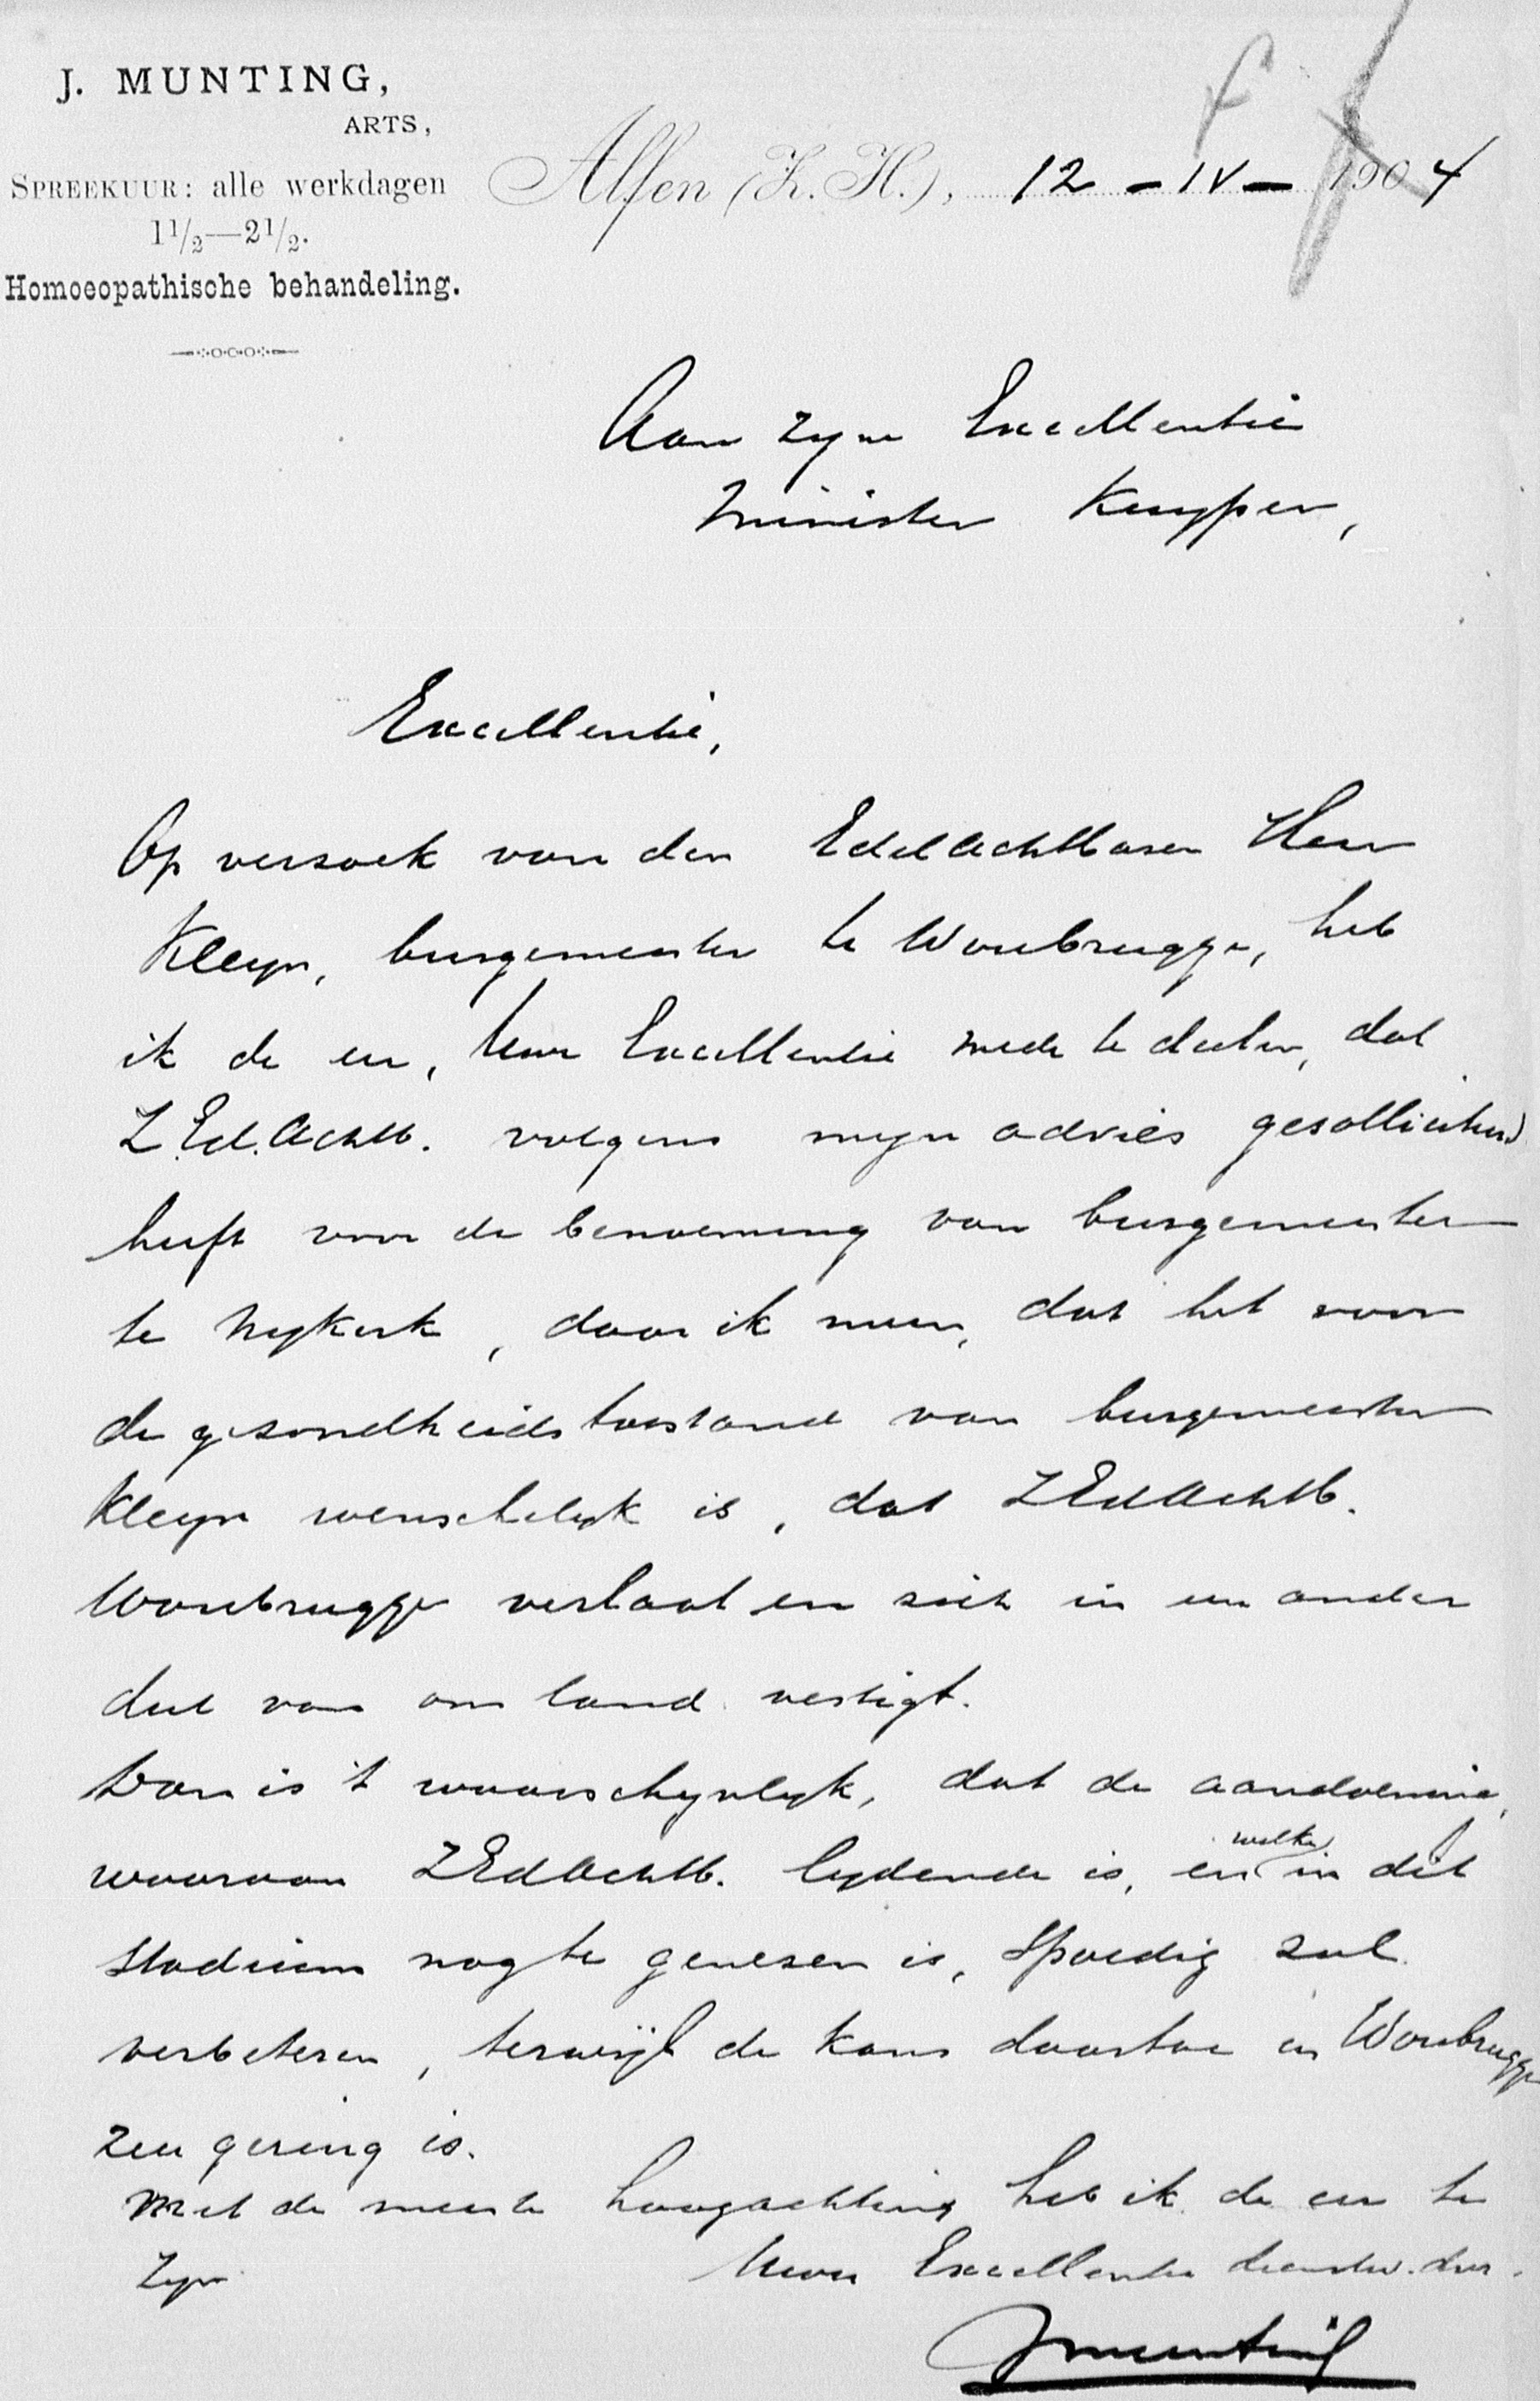 J. MUNTING,
ARTS,
SPREEKUUR: alle werkdagen
1 1/2—2 1/2.
Homoeopathische behandeling.
Alfen (Z. H.), 12 - IV - 1904
Aan Zyne Excellentie
Minister Kuyper,
Excellentie,
Op verzoek van den EdelAchtbaren Heer
Kleyn, burgemeester te Woubrugge, heb
ik de eer, Uwe Excellentie mede te deelen, dat
Z.Ed.Achtb. volgens myn advies gesolliciteerd
heeft voor de benoeming van burgemeester
te Nykerk, daar ik meen, dat het voor
de gezondheidstoestand van burgemeester
Kleyn wenschelyk is, dat ZEdAchtb.
Woubrugge verlaat en zich in een ander
deel van ons land vestigt.
Dan is 't waarschynlyk, dat de aandoening,
waaraan ZEdAchtb. lydende is, en welke in dit
stadium nog te genezen is, spoedig zal
verbeteren, terwijl de kans daartoe in Woubrugge
zeer gering is.
Met de meeste hoogachting heb ik de eer te
zyn Uwer Excellentie dienstw. dnr.
JMunting